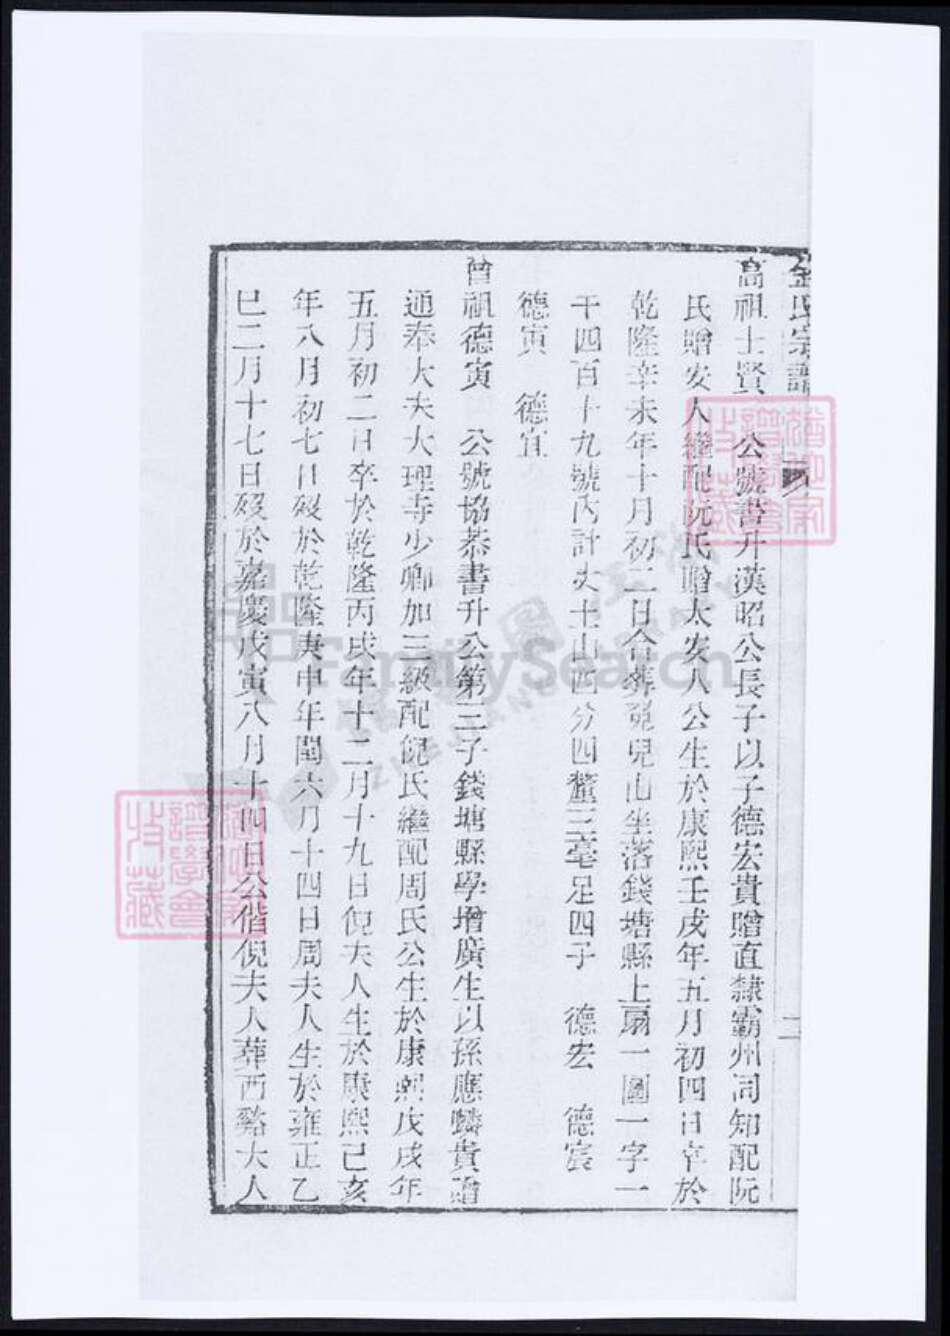 金氏宗譜
二
高祖士賢 公號書升漢昭公長子以子德宏貴贈直隸霸州同知配阮
氏贈安人繼配阮氏贈太安人公生於康熙壬戌年五月初四日卒於
乾隆辛未年十月初二日合葬 兒山坐落錢塘縣上扇一圖一字一
千四百十九號內計丈土山四分四釐三毫足四子 德宏 德宸
德寅 德宜
曾祖德寅 公號協恭書升公第三子錢塘縣學增廣生以孫應麟貴贈
通奉大夫大理寺少卿加三級配倪氏繼配周氏公生於康熙戊戌年
五月初二日卒於乾隆丙戌年十二月十九日倪夫人生於康熙己亥
年八月初七日歿於乾隆庚申年閏六月十四日周夫人生於雍正乙
巳二月十七日歿於嘉慶戊寅八月十四日公偕倪夫人葬西谿大人
譜學會
收藏
譜學會
收藏
FamilySearch